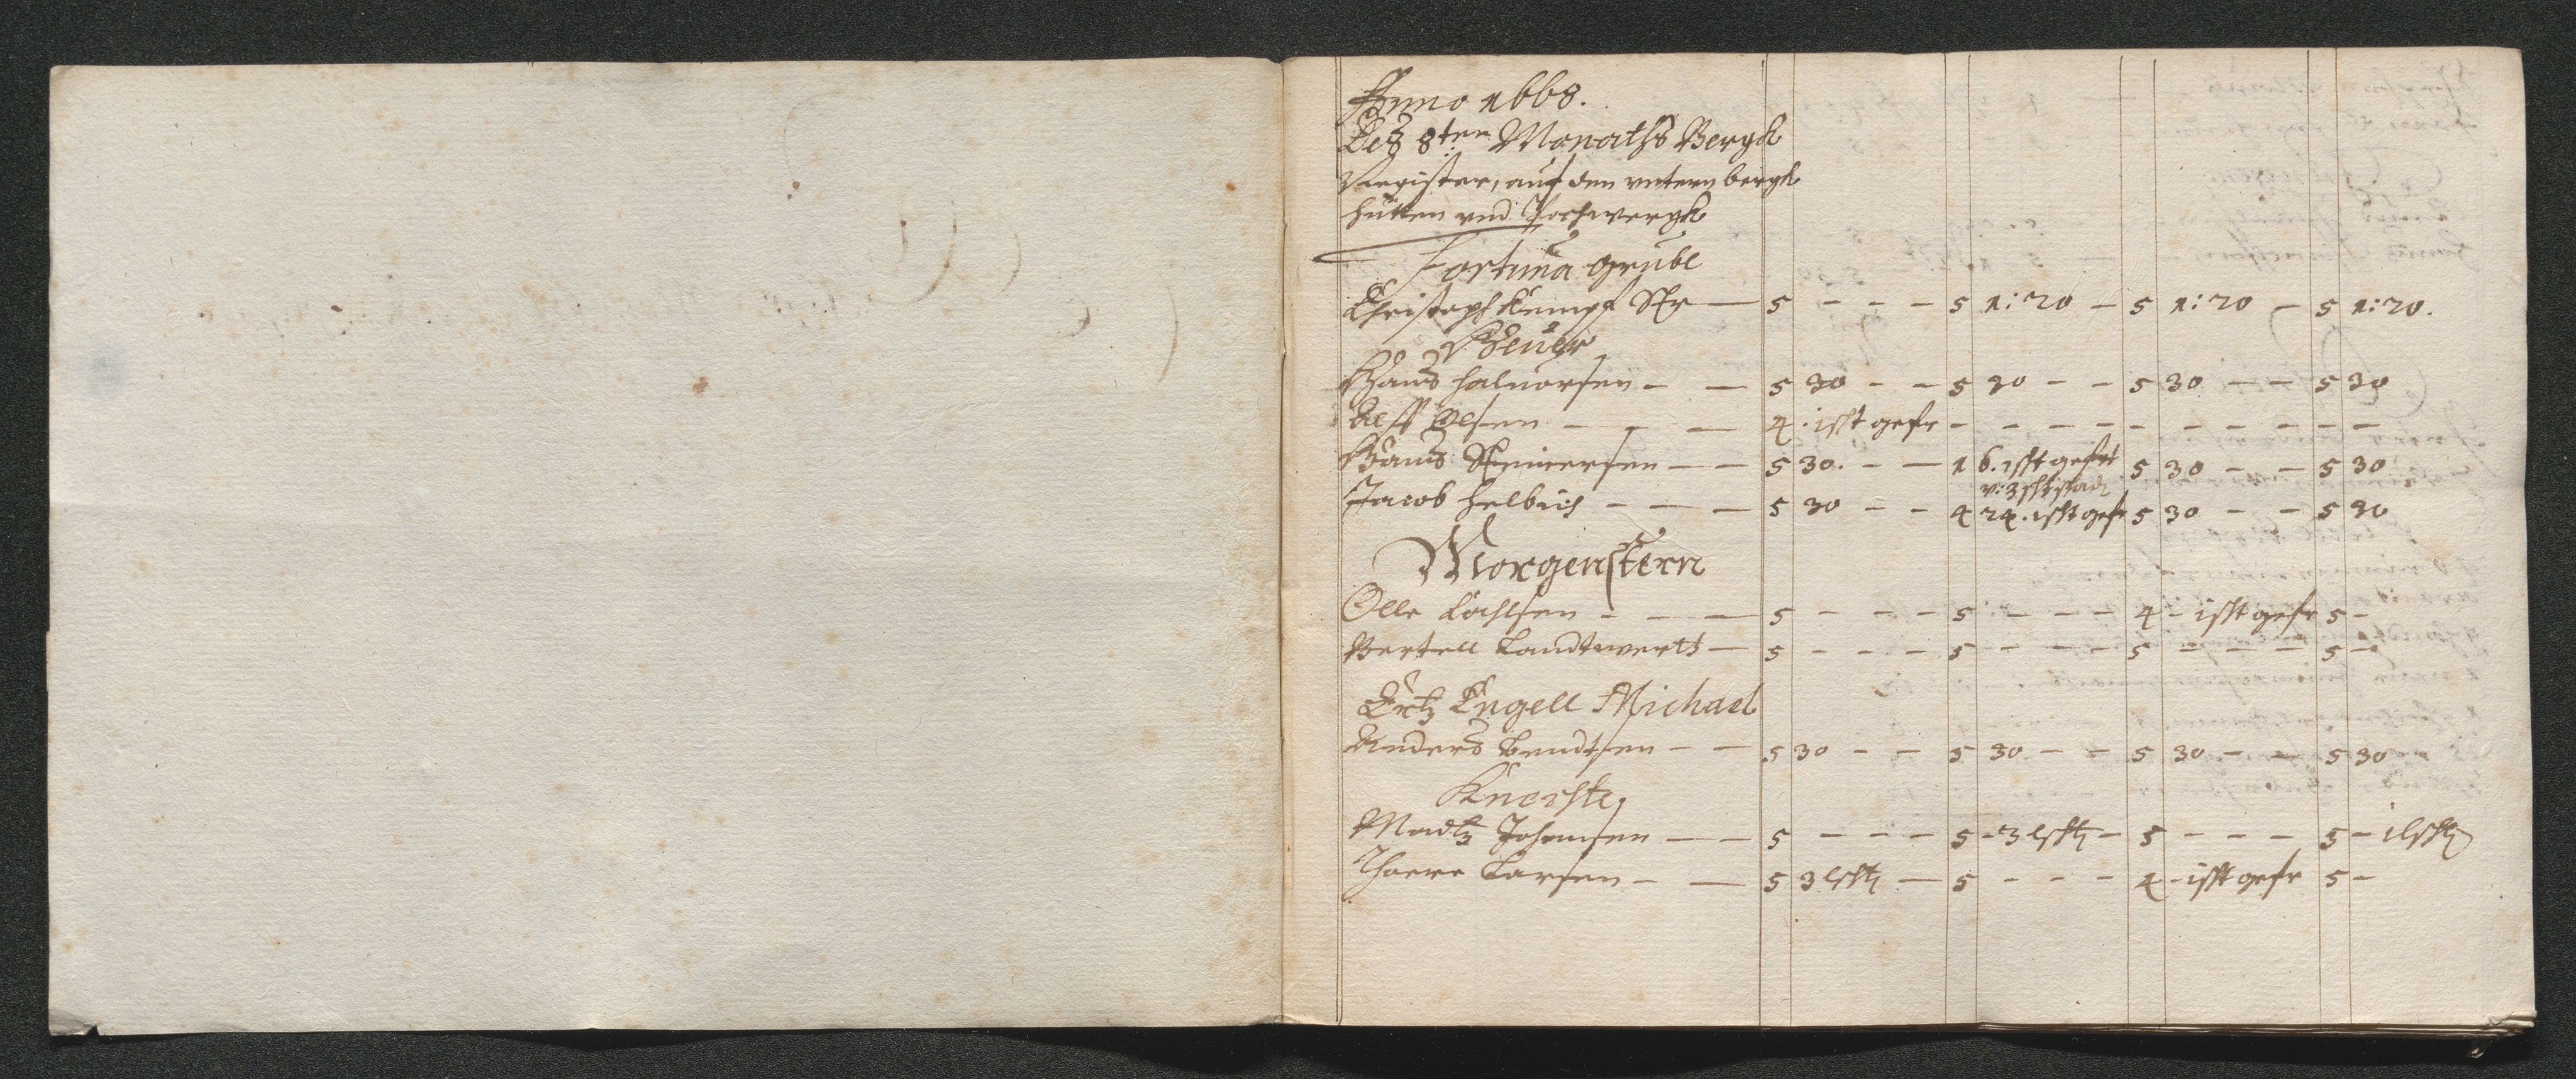 Anno 1668.
Deß 8ten Monaths Bergk
Register, auf den untern bergk
hütten und Pochwergk
Fortuna grube
Christoph Kempf Str — 5 - - - 5 1:20 — 5 1:20 — 5 1:20.
Heuer
Hanß Halvorsen - — 5 30 - - 5 30 - - 5 30 - - 5 30
Olsen - - — 4. ist gefr - - - - - - - - -
Hanß Steinersen — — 5 30. - — 1 6. ist gefrt 5 30 - - 5 30
v: 3 scht
Jacob Helbich - - — 5 30 - - 4 24. ist gefr 5 30 - - 5 30
Morgenstern
Olle - - — 5 - - - 5 - - - 4 - ist gefr 5 -
Bertell Landtwertt — 5 - - - 5 - - - 5 - - - 5 -
Ertz Engell Michael
Anders Bendtsen - — 5 30 - - 5 30 - - 5 30 - - 5 30
Knerste
Madtz Johansen — — 5 - - - 5 - 3 lscht - 5 - - - 5 - 1lscht
Thorre Larsen - — 5 3 lscht — 5 - - - 4 - ist gefr 5 -